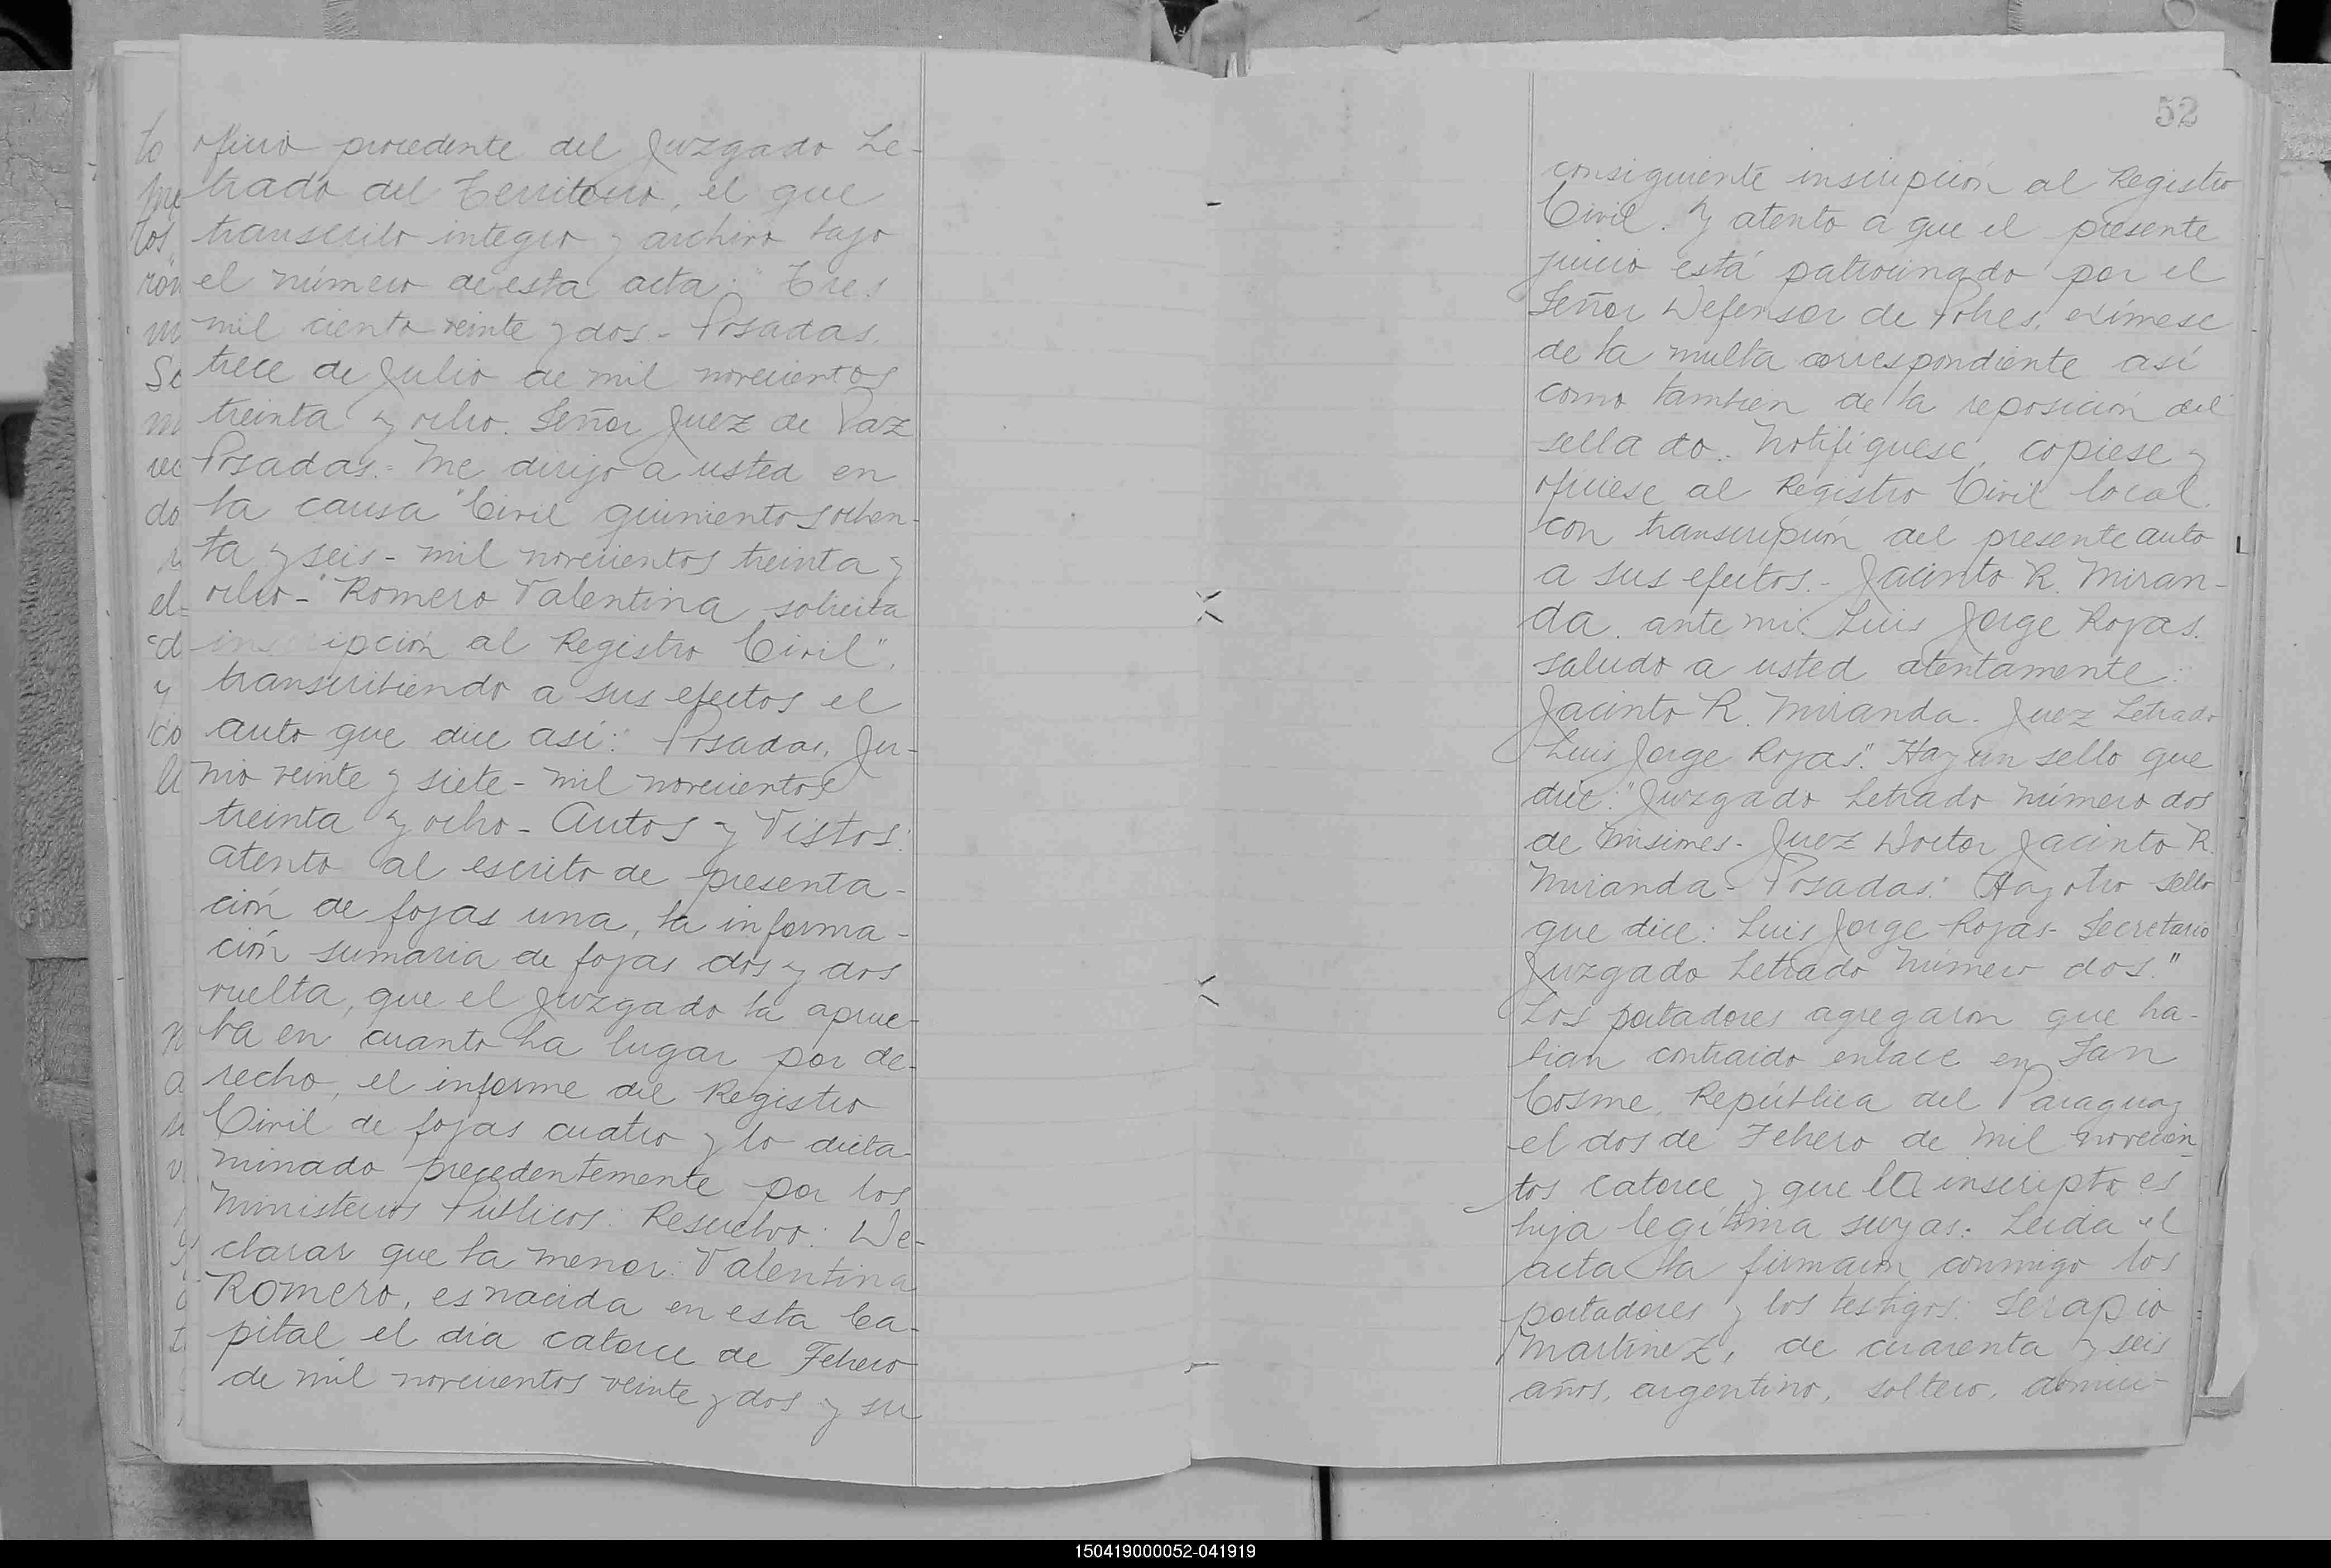 oficio procedente del Juzgado Le-
trado del Territorio, el que
transcribo integro y archivo bajo
el número de esta acta: "Tres
mil ciento veinte y dos - Posadas,
trece de Julio de mil novecientos
treinta y ocho. Señor Juez de Paz
Posadas.- Me dirijo a usted en
la causa "Civil quinientos ochen-
ta y seis - mil novecientos treinta y
ocho - "Romero Valentina solicita
inscripción al Registro Civil",
transcribiendo a sus efectos el
auto que dice así: "Posadas, Ju-
nio veinte y siete - mil novecientos
treinta y ocho - Autos y Vistos:
atento al escrito de presenta-
ción de fojas una, la informa-
ción sumaria de fojas dos y dos
vuelta, que el Juzgado la aprue-
ba en cuanto ha lugar por de-
recho, el informe del Registro
Civil de fojas cuatro y lo dicta-
minado precedentemente por los
Ministerios Públicos: Resuelvo: De-
clarar que la menor: Valentina
Romero, es nacida en esta Ca-
pital el día catorce de Febrero
de mil novecientos veinte y dos y su
52
consiguiente inscripción al Registro
Civil. Y atento a que el presente
juicio está patrocinado por el
Señor Defensor de Pobres, exímese
de la multa correspondiente así
como también de la reposición del
sellado. Notifíquese, copiese y
ofíciese al Registro Civil local,
con transcripción del presente auto
a sus efectos.- Jacinto R. Miran-
da. ante mi: Luis Jorge Rojas.
saludo a usted atentamente:
Jacinto R. Miranda - Juez Letrado
Luis Jorge Rojas". Hay un sello que
dice: "Juzgado Letrado Número dos
de Misiones - Juez Doctor Jacinto R.
Miranda - Posadas." Hay otro sello
que dice: Luis Jorge Rojas - Secretario
Juzgado Letrado Número dos."
Los portadores agregaron que ha-
bian contraido enlace en San
Cosme, República del Paraguay
el dos de Febrero de mil novecien-
tos catorce y que la inscripta es
hija legítima suyas: Leida el
acta la firmaron conmigo los
portadores y los testigos: Serapio
Martinez, de cuarenta y seis
años, argentino, soltero, domici-
150419000052-041919